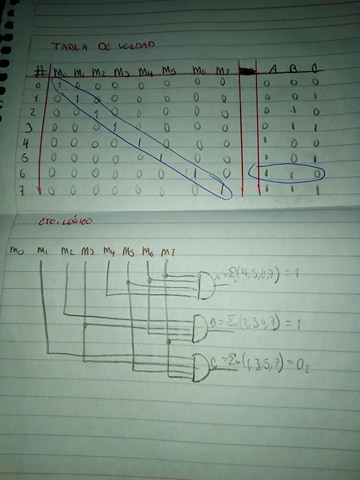 TABLA DE VERDAD
# M₀ M₁ M₂ M₃ M₄ M₅ M₆ M₇ A B C
0 1 0 0 0 0 0 0 0 0 0 0
1 0 1 0 0 0 0 0 0 0 0 1
2 0 0 1 0 0 0 0 0 0 1 0
3 0 0 0 1 0 0 0 0 0 1 1
4 0 0 0 0 1 0 0 0 1 0 0
5 0 0 0 0 0 1 0 0 1 0 1
6 0 0 0 0 0 0 1 0 1 1 0
7 0 0 0 0 0 0 0 1 1 1 1
CTO. LÓGICO
M₀ M₁ M₂ M₃ M₄ M₅ M₆ M₇
A = Σ(4,5,6,7) = 1
B = Σm(2,3,6,7) = 1
C = Σm(1,3,5,7) = 0₂